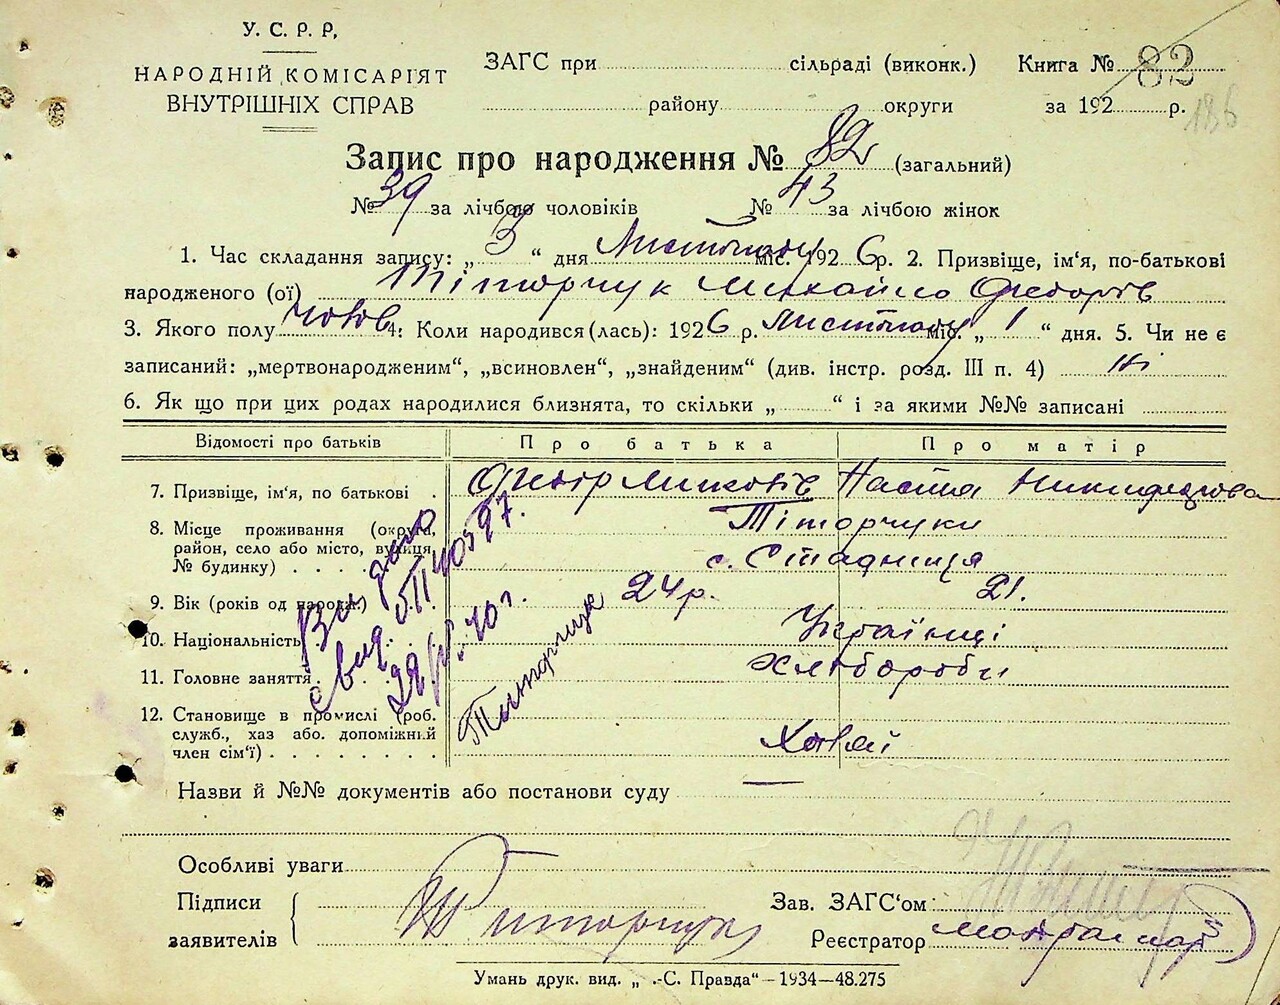 У. С. Р. Р.
НАРОДНІЙ КОМІСАРІЯТ
ВНУТРІШНІХ СПРАВ
ЗАГС при сільраді (виконк.) Книга № 82
району округи за 192 р. 186
Запис про народження № 82 (загальний)
№ 39 за лічбою чоловіків № 43 за лічбою жінок
1. Час складання запису: „ 3 “ дня Листопаду міс. 192 6 р. 2. Призвіще, ім'я, по-батькові
народженого (ої) Тіторчук Михайло Федорів
3. Якого полу чолов 4: Коли народився (лась): 192 6 р. Листопаду міс. „ 1 “ дня. 5. Чи не є
записаний: „мертвонародженим“, „всиновлен“, „знайденим“ (див. інстр. розд. III п. 4) ні
6. Як що при цих родах народилися близнята, то скільки „ “ і за якими №№ записані
Відомості про батьків Про батька Про матір
7. Призвіще, ім'я, по батькові . Федір Настя
Тіторчуки
8. Місце проживання (округа,
район, село або місто, вулиця,
№ будинку) . . . . с. Стадниця
9. Вік (років од народж.) 24 р. 21.
10. Національність Українці
11. Головне заняття . Хлібороби
12. Становище в промислі (роб.
служб., хаз або. допоміжний
член сім'ї) . . . . . . . . Хазяї
Видано
свид. 40597.
40 г.
Титорчук
Назви й №№ документів або постанови суду —
Особливі уваги
Підписи
заявителів
Титорчук
Зав. ЗАГС‘ом
Реєстратор
Умань друк. вид. „ .-С. Правда“ – 1934—48.275